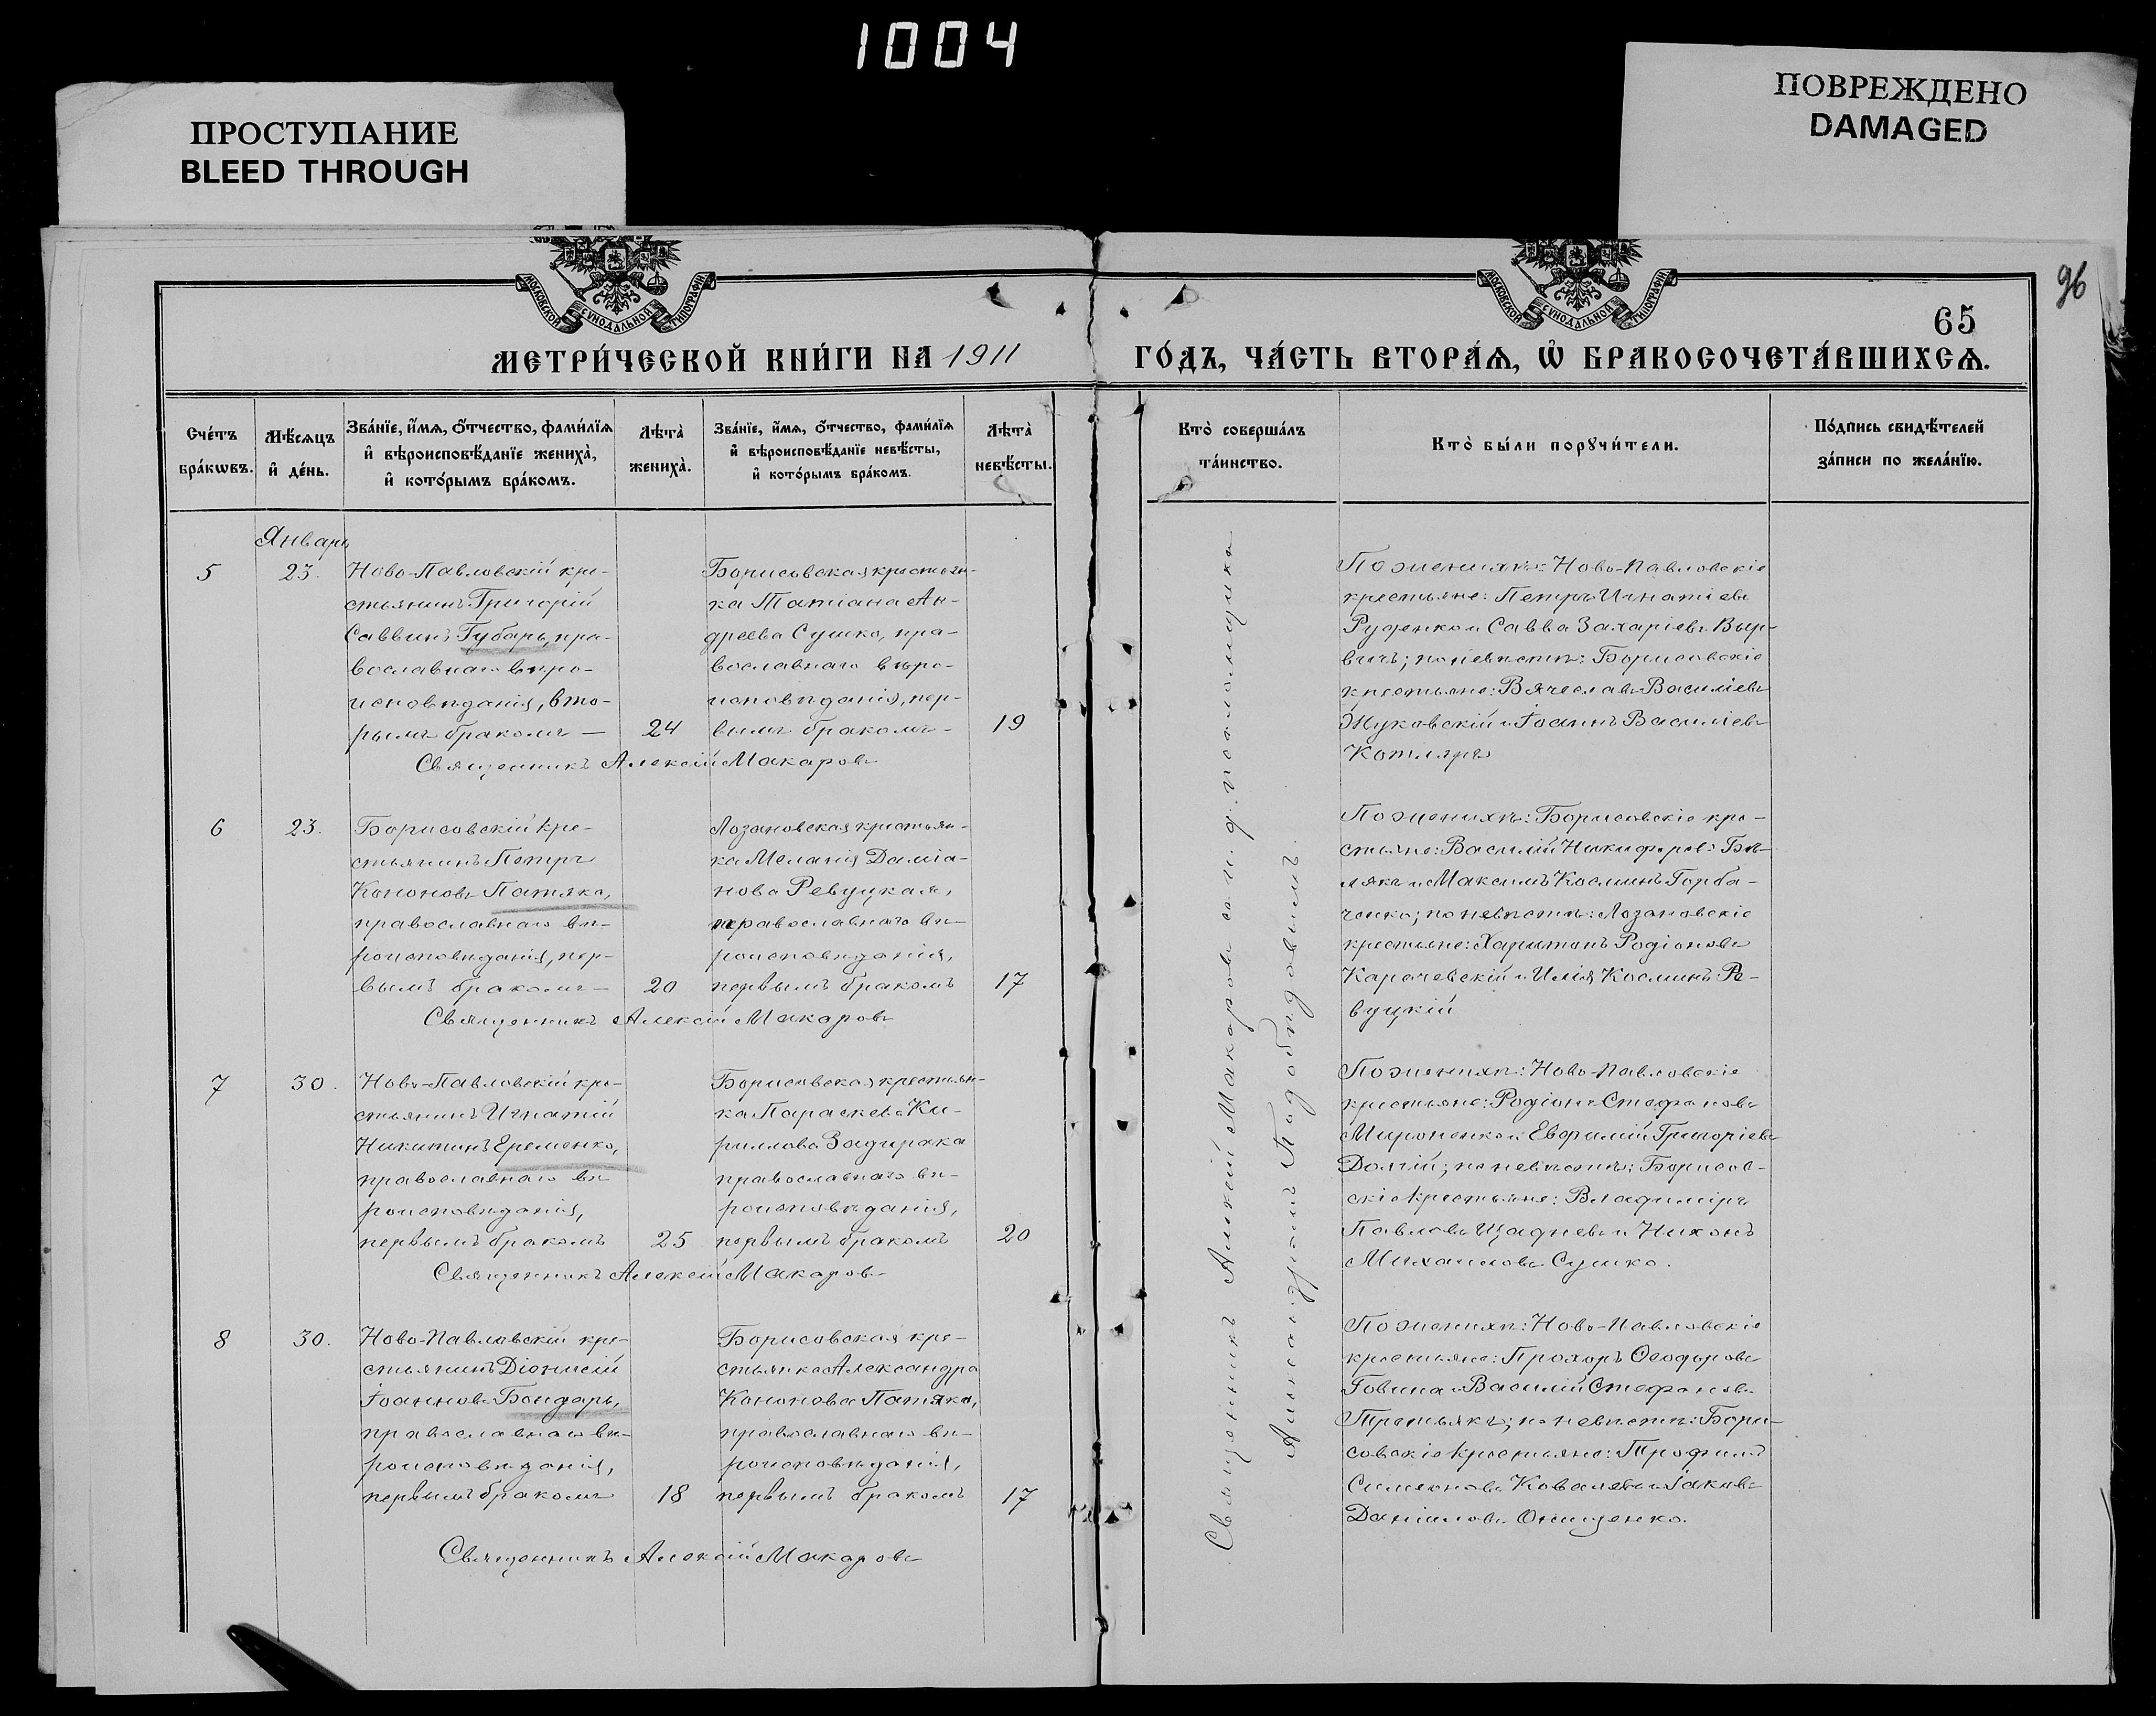 1004
ПРОСТУПАНИЕ
BLEED THROUGH
ПОВРЕЖДЕНО
DAMAGED
96
МОСКОВСКОЙ СѴНОДАЛЬНОЙ ТИПОГРАФІИ
МОСКОВСКОЙ СѴНОДАЛЬНОЙ ТИПОГРАФІИ
65
МЕТРИ́ЧЕСКОЙ КНИ́ГИ НА 1911 ГО́ДЪ, ЧА́СТЬ ВТОРА́Ѧ, Ѡ҆ БРАКОСОЧЕТА́ВШИХСѦ.
Сче́тъ
бра́кѡвъ.
Мѣ́сѧцъ
и҆ де́нь.
Зва́нїе, и҆́мѧ, ѻ҆́тчество, фами́лїѧ
и҆ вѣроисповѣ́данїе жениха̀,
и҆ кото́рымъ бра́комъ.
Лѣта̀
жениха̀.
Зва́нїе, и҆́мѧ, ѻ҆́тчество, фами́лїѧ
и҆ вѣроисповѣ́данїе невѣ́сты,
и҆ кото́рымъ бра́комъ.
Лѣта̀
невѣ́сты.
Кто̀ соверша́лъ
та́инство.
Кто̀ бы́ли порꙋчи́тели.
По́дпись свидѣ́телей
за́писи по жела́нїю.
Январь
5
23.
Ново-Павловскій кре-
стьянинъ Григорій
Саввинъ Губарь, пра-
вославнаго вѣро-
исповѣданія, вто-
рымъ бракомъ —
24
Борисовская крестьян-
ка Татіана Ан-
дреева Сушко, пра-
вославнаго вѣро-
исповѣданія, пер-
вымъ бракомъ -
19
Священникъ Алексій Макаровъ
По женихѣ: Ново-Павловскіе
крестьяне: Петръ Игнатіевъ
Руденко и Савва Захаріевъ Выр-
вичъ; по невѣстѣ: Борисовскіе
крестьяне: Вячеславъ Василіевъ
Жуковскій и Іоаннъ Василіевъ
Котляръ
6
23.
Борисовскій кре-
стьянинъ Петръ
Кононовъ Патяка,
православнаго вѣ-
роисповѣданія, пер-
вымъ бракомъ —
20
Лозановская крестьян-
ка Меланія Даміа-
нова Ревуцкая,
православнаго вѣ-
роисповѣданія,
первымъ бракомъ
17
Священникъ Алексій Макаровъ
По женихѣ: Борисовскіе кре-
стьяне: Василій Никифоровъ Бѣ-
лякъ и Максимъ Косминъ Горба-
ченко; по невѣстѣ: Лозановскіе
крестьяне: Харитонъ Родіоновъ
Карачевскій и Илія Косминъ Ре-
вуцкій
7
30.
Ново-Павловскій кре-
стьянинъ Игнатій
Никитинъ Еременко,
православнаго вѣ-
роисповѣданія,
первымъ бракомъ
25
Борисовская крестьян-
ка Параскева Ки-
риллова Задирака
православнаго вѣ-
роисповѣданія,
первымъ бракомъ
20
Священникъ Алексій Макаровъ
По женихѣ: Ново-Павловскіе
крестьяне: Родіонъ Стефановъ
Мироненко и Евфимій Григоріевъ
Долгій; по невѣстѣ: Борисов-
скіе крестьяне: Владиміръ
Павловъ и Никонъ
Михаиловъ Сушко.
8
30.
Ново-Павловскій кре-
стьянинъ Діонисій
Іоанновъ Бондарь,
православнаго вѣ-
роисповѣданія,
первымъ бракомъ
18
Борисовская кре-
стьянка Александра
Кононова Патяка,
православнаго вѣ-
роисповѣданія,
первымъ бракомъ
17
Священникъ Алексій Макаровъ
По женихѣ: Ново-Павловскіе
крестьяне: Прохоръ Ѳеодоровъ
Говина и Василій Стефановъ
Третьякъ; по невѣстѣ: Бори-
совскіе крестьяне: Трофимъ
Симеоновъ Ковалевъ и Іаковъ
Даніиловъ Онищенко.
Священникъ Алексій Макаровъ съ и. д. псаломщика
Александромъ Подобѣдовымъ.